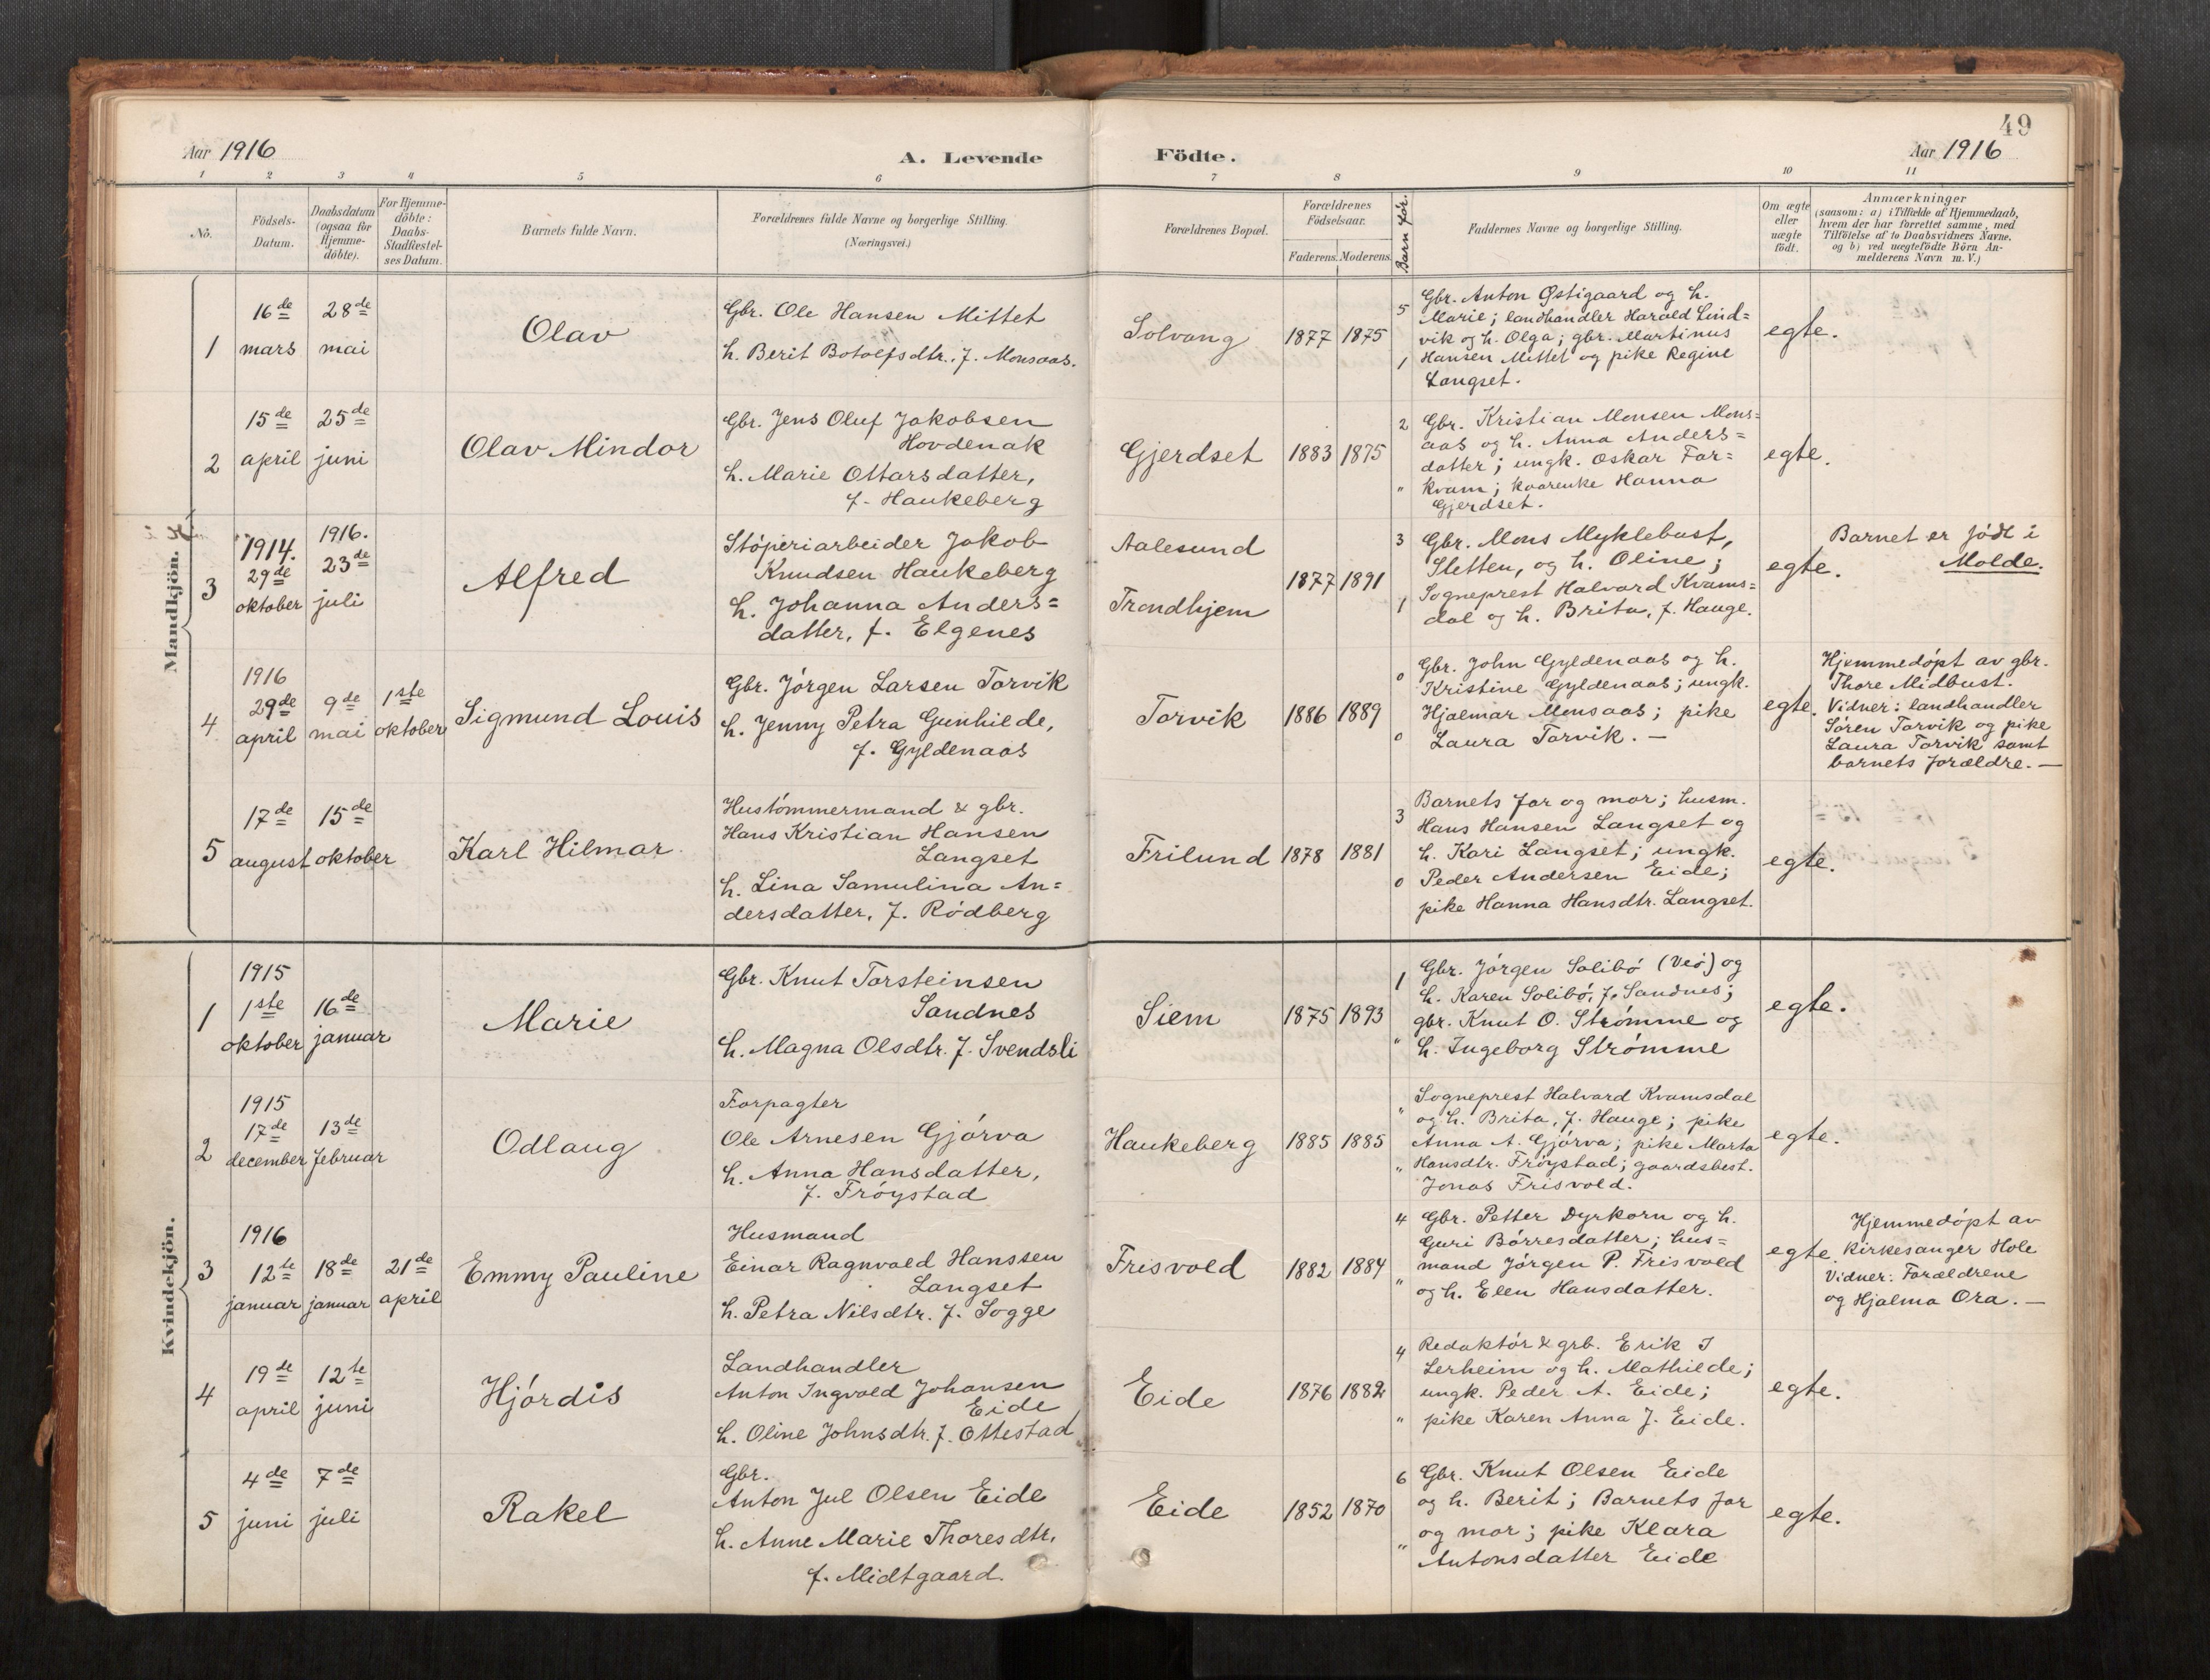 49
Aar 1916
A. Levende
Födte.
Aar 1916
1 2 3 4 5 6 7 8 9 10 11
No.
Födsels-
Datum.
Daabsdatum
(ogsaa for
Hjemme-
döbte).
For Hjemme-
döbte:
Daabs-
Stadfæstel-
ses Datum.
Barnets fulde Navn.
Forældrenes fulde Navne og borgerlige Stilling.
(Næringsvei.)
Forældrenes Bopæl.
Forældrenes
Födselsaar.
Faderens. Moderens.
Barn før.
Faddernes Navne og borgerlige Stilling.
Om ægte
eller
uægte
födt.
Anmærkninger
(saasom: a) i Tilfælde af Hjemmedaab,
hvem der har forrettet samme, med
Tilföielse af to Daabsvidners Navne,
og b) ved uægtefödte Börn An-
melderens Navn m. V.)
Mandkjön.
1
16de
mars
28de
mai
Olav
Gbr. Ole Hansen Mittet
h. Berit Botolfsdtr. f. Monsaas.
Solvang
1877 1875
5
1
Gbr. Anton Østigaard og h.
Marie; landhandler Harald Lind=
vik og h. Olga; gbr. Martinus
Hansen Mittet og pike Regine
Langset.
egte.
2
15de
april
25de
juni
Olav Mindor
Gbr. Jens Oluf Jakobsen
Hovdenak
h. Marie Ottarsdatter,
f. Haukeberg
Gjerdset
1883 1875
2
"
Gbr. Kristian Monsen Mons=
aas og h. Anna Anders=
datter; ungk. Oskar Far=
kvam; kaarenke Hanna
Gjerdset.
egte.
3
1914.
29de
oktober
1916.
23de
juli
Alfred
Stöperiarbeider Jakob
Knudsen Haukeberg
h. Johanna Anders=
datter, f. Elgenes
Aalesund
Trondhjem
1877 1891
3
1
Gbr. Mons Myklebust,
Sletten, og h. Oline;
Sogneprest Halvard Kvams=
dal og h. Brita, f. Hauge.
egte.
Barnet er födt i
Molde.
4
1916
29de
april
9de
mai
1ste
oktober
Sigmund Louis
Gbr. Jörgen Larsen Torvik
h. Jenny Petra Gunhilde,
f. Gyldenaas
Torvik
1886 1889
0
0
Gbr. John Gyldenaas og h.
Kristine Gyldenaas; ungk.
Hjalmar Monsaas; pike
Laura Torvik. —
egte.
Hjemmedöpt av gbr.
Thore Midbust.
Vidner: landhandler
Sören Torvik og pike
Laura Torvik samt
barnets forældre. —
5
17de
august
15de
oktober
Karl Hilmar
Hustömmermand & gbr.
Hans Kristian Hansen
Langset
h. Lina Samulina An=
dersdatter, f. Rödberg
Frilund
1878 1881
3
0
Barnets far og mor; husm.
Hans Hansen Langset og
h. Kari Langset; ungk.
Peder Andersen Eide;
pike Hanna Hansdtr. Langset.
egte.
Kvindekjön.
1
1915
1ste
oktober
16de
januar
Marie
Gbr. Knut Torsteinsen
Sandnes
h. Magna Olsdtr. f. Svendsli
Siem
1875 1893
1
"
Gbr. Jörgen Solibö (Veö) og
h. Karen Solibö, f. Sandnes;
gbr. Knut O. Strömme og
h. Ingeborg Strömme
egte.
2
1915
17de
december
13de
februar
Odlaug
Forpagter
Ole Arnesen Gjörva
h. Anna Hansdatter,
f. Fröystad
Haukeberg
1885 1885
"
"
Sogneprest Halvard Kvamsdal
og h. Brita, f. Hauge; pike
Anna A. Gjörva; pike Marta
Hansdtr. Fröystad; gaardsbest.
Jonas Frisvold.
egte.
3
1916
12te
januar
18de
januar
21de
april
Emmy Pauline
Husmand
Einar Ragnvald Hanssen
Langset
h. Petra Nilsdtr. f. Sogge
Frisvold
1882 1884
4
"
Gbr. Petter Dyrkorn og h.
Guri Börresdatter; hus=
mand Jörgen P. Frisvold
og h. Elen Hansdatter.
egte.
Hjemmedöpt av
kirkesanger Hole
Vidner: Forældrene
og Hjalma Ora. —
4
19de
april
12te
juni
Hjördis
Landhandler
Anton Ingvald Johansen
Eide
h. Oline Johnsdtr. f. Ottestad
Eide
1876 1882
4
"
Redaktör & grb. Erik I
Lerheim og h. Mathilde;
ungk. Peder A. Eide;
pike Karen Anna J. Eide.
egte.
5
4de
juni
7de
juli
Rakel
Gbr.
Anton Jul Olsen Eide
h. Anne Marie Thoresdtr.
f. Midtgaard.
Eide
1852 1870
6
"
Gbr. Knut Olsen Eide
og h. Berit; Barnets far
og mor; pike Klara
Antonsdatter Eide
egte.